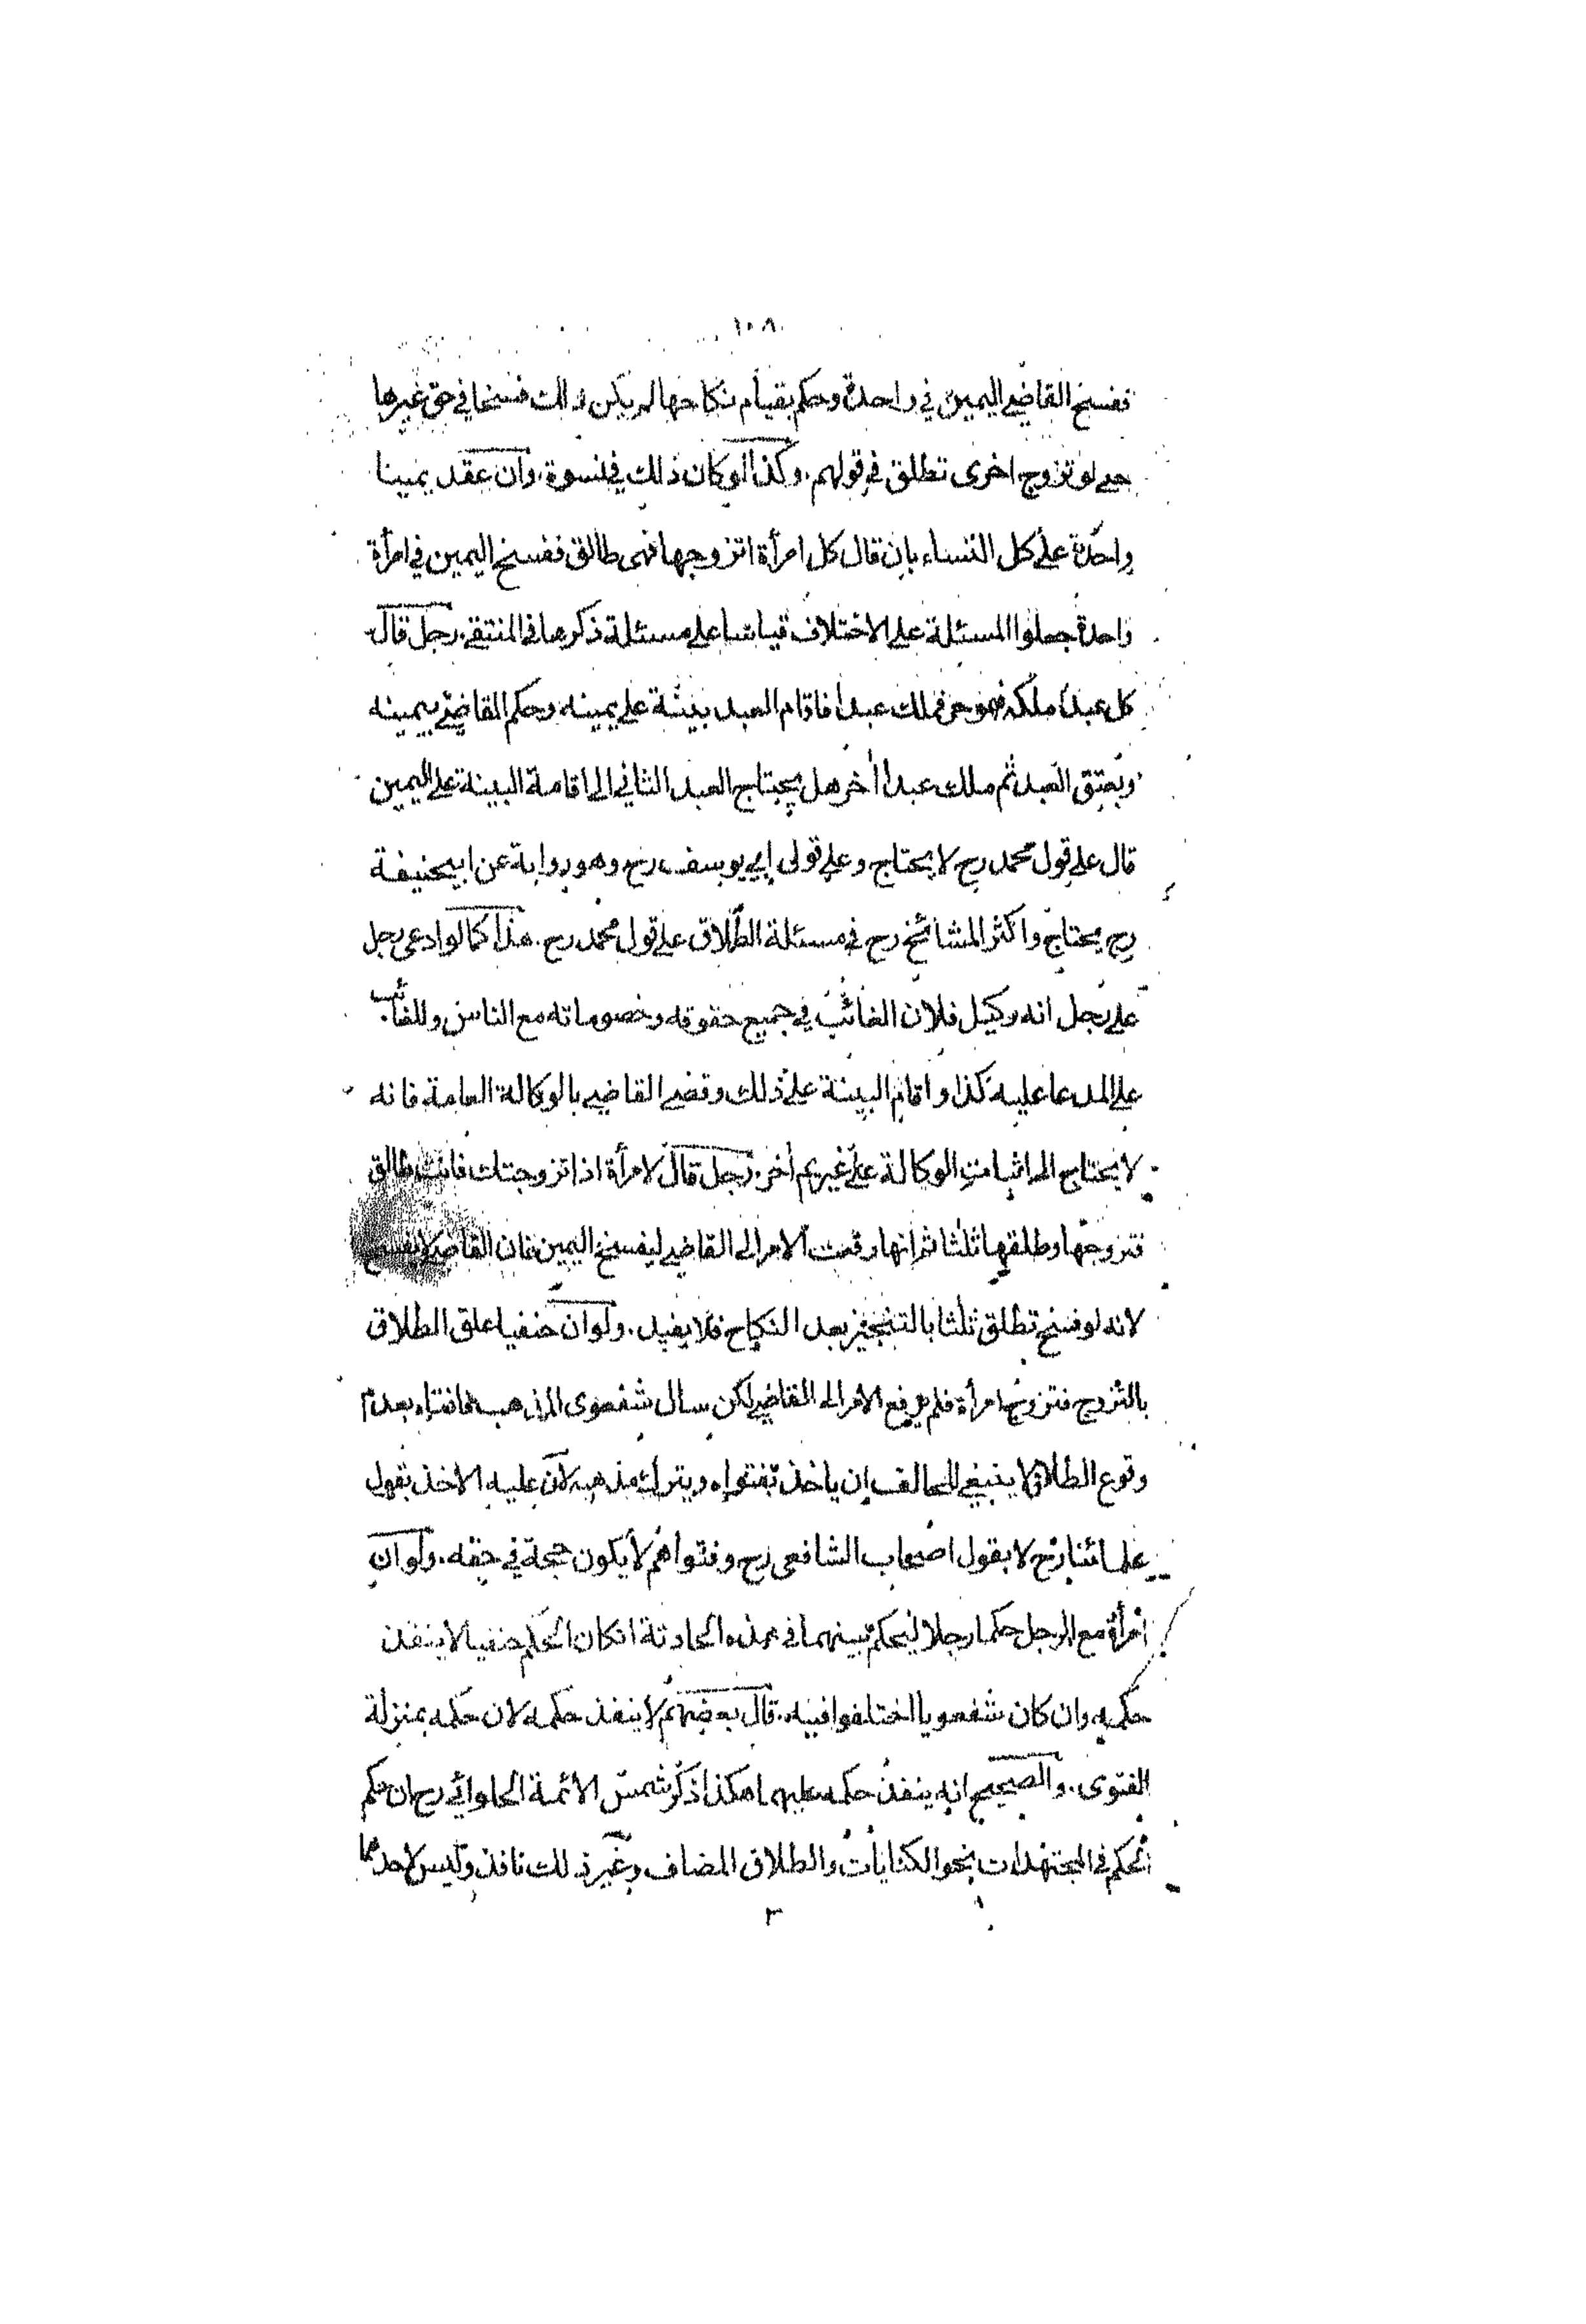 ١٠٨
ففسخ القاضي اليمين في واحدة وحكم بقيام نكاحها لم يكن ذلك فسخا في حق غيرها
حتى لو تزوج اخرى تطلق في قولهم. وكذا لو كان ذلك في نسوة. وان عقد يمينا
واحدة على كل النساء بان قال كل امرأة اتزوجها فهى طالق ففسخ اليمين في امرأة
واحدة جعلوا المسئلة على الاختلاف قياسا على مسئلة ذكرها في المنتقى. رجل قال
كل عبد املكه فهو حر فملك عبدا فاقام العبد بينة على يمينه وحكم القاضي بيمينه
وبعتق العبد ثم ملك عبدا أخر هل يحتاج العبد الثاني الى اقامة البينة على اليمين
قال على قول محمد رح لا يحتاج وعلى قول ابي يوسف رح وهو رواية عن ابيحنيفة
رح يحتاج واكثر المشائخ رح في مسئلة الطلاق على قول محمد رح. هذا كما لو ادعى رجل
على رجل انه وكيل فلان الغائب في جميع حقوقه وخصوماته مع الناس وللغائب
على المدعا عليه كذا واقام البينة على ذلك وقضى القاضي بالوكالة العامة فانه
لا يحتاج الى اثبات الوكالة على غريم أخر. رجل قال لامرأة اذا تزوجتك فانت طالق
فتزوجها وطلقها ثلثا ثم انها رفعت الامر الى القاضي ليفسخ اليمين فان القاضي لا يفسخ
لانه لو فسخ تطلق ثلثا بالتنجيز بعد النكاح فلا يفيد. ولو ان حنفيا علق الطلاق
بالتزوج فتزوج امرأة فلم يرفع الامر الى القاضي لكن سال شفعوى المذهب فافتاه بعدم
وقوع الطلاق لا ينبغي للحالف ان ياخذ بفتواه ويترك مذهبه لان عليه الاخذ بقول
علمائنا رح لا بقول اصحاب الشافعى رح وفتواهم لا يكون حجة في حقه. ولو ان
امرأة مع الرجل حكما رجلا ليحكم بينهما في هذه الحادثة انكان الحكم حنفيا لا ينفذ
حكمه وان كان شفعويا اختلفوا فيه. قال بعضهم لا ينفذ حكمه لان حكمه بمنزلة
الفتوى. والصحيح انه ينفذ حكمه عليهما هكذا ذكر شمس الائمة الحلوائي رح ان حكم
الحكم في المجتهدات نحو الكنايات والطلاق المضاف وغير ذلك نافذ وليس لاحدهما
٣